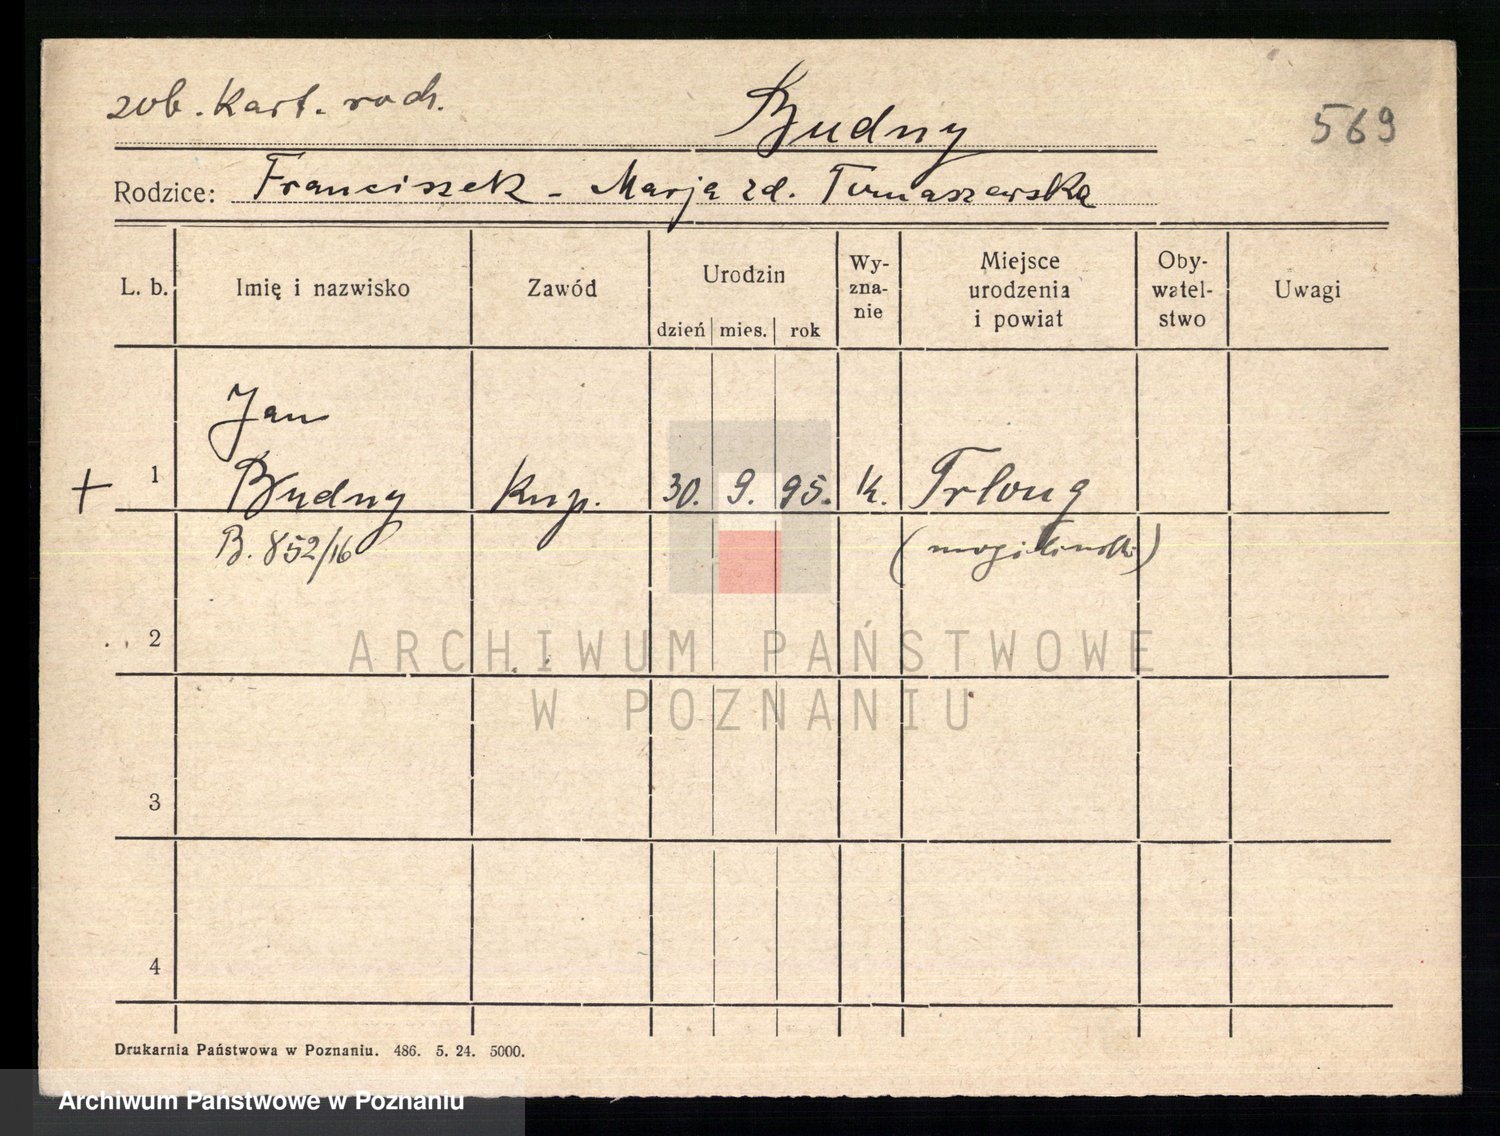 zob. Kart. rodz.
Budny
569
Rodzice: Franciszek - Marja zd. Tomaszewska
L. b.
Imię i nazwisko
Zawód
Urodzin
dzień mies. rok
Wy-
zna-
nie
Miejsce
urodzenia
i powiat
Oby-
watel-
stwo
Uwagi
Jan
+ 1 Budny Kup. 30. 9. 95. k. Trlong
B. 852/16 (mogilnicki)
2
ARCHIWUM PAŃSTWOWE
W POZNANIU
3
4
Drukarnia Państwowa w Poznaniu. 486. 5. 24. 5000.
Archiwum Państwowe w Poznaniu